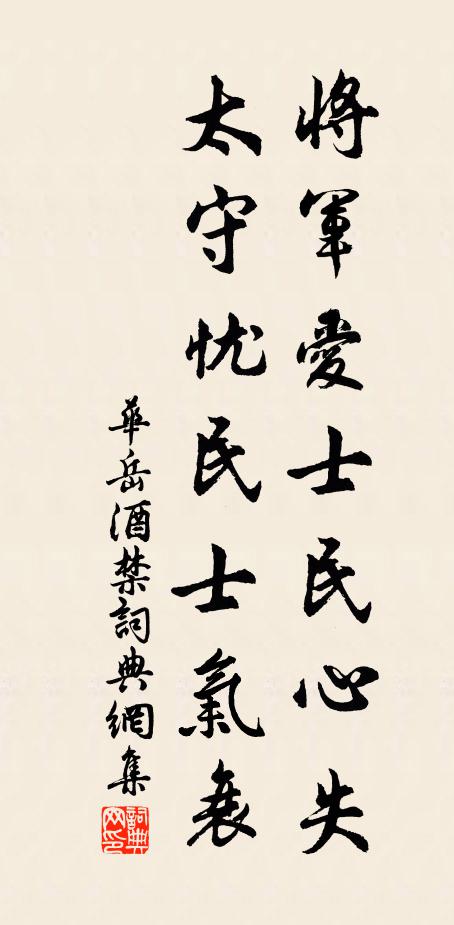 將軍愛士民心失
太守忧民士氣衰
華岳酒禁詞典網集
詞典
网印